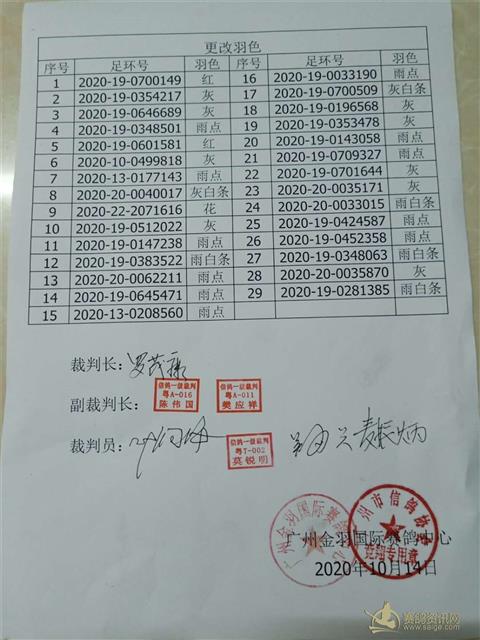 更改羽色
序号 足环号 羽色 序号 足环号 羽色
1 2020-19-0700149 红 16 2020-19-0033190 雨点
2 2020-19-0354217 灰 17 2020-19-0700509 灰白条
3 2020-19-0646689 灰 18 2020-19-0196568 灰
4 2020-19-0348501 雨点 19 2020-19-0353478 灰
5 2020-19-0601581 红 20 2020-19-0143058 雨点
6 2020-10-0499818 灰 21 2020-19-0709327 雨点
7 2020-13-0177143 雨点 22 2020-19-0701644 灰
8 2020-20-0040017 灰白条 23 2020-20-0035171 灰
9 2020-22-2071616 花 24 2020-20-0033015 雨白条
10 2020-19-0512022 灰 25 2020-19-0424587 雨点
11 2020-19-0147238 雨点 26 2020-19-0452358 雨点
12 2020-19-0383522 雨白条 27 2020-19-0348063 雨白条
13 2020-20-0062211 雨点 28 2020-20-0035870 灰
14 2020-19-0645471 雨点 29 2020-19-0281385 雨白条
15 2020-13-0208560 雨点
裁判长:
信鸽一级裁判 信鸽一级裁判
粤A-016 粤A-011
副裁判长: 陈伟国 樊应祥
信鸽一级裁判
裁判员: 粤T-002 麦振炳
莫锐明
广州金羽国际赛鸽中心
广州市信鸽协会
竞翔专用章
广州金羽国际赛鸽中心
2020年10月14日
赛鸽资讯网
www.saige.com